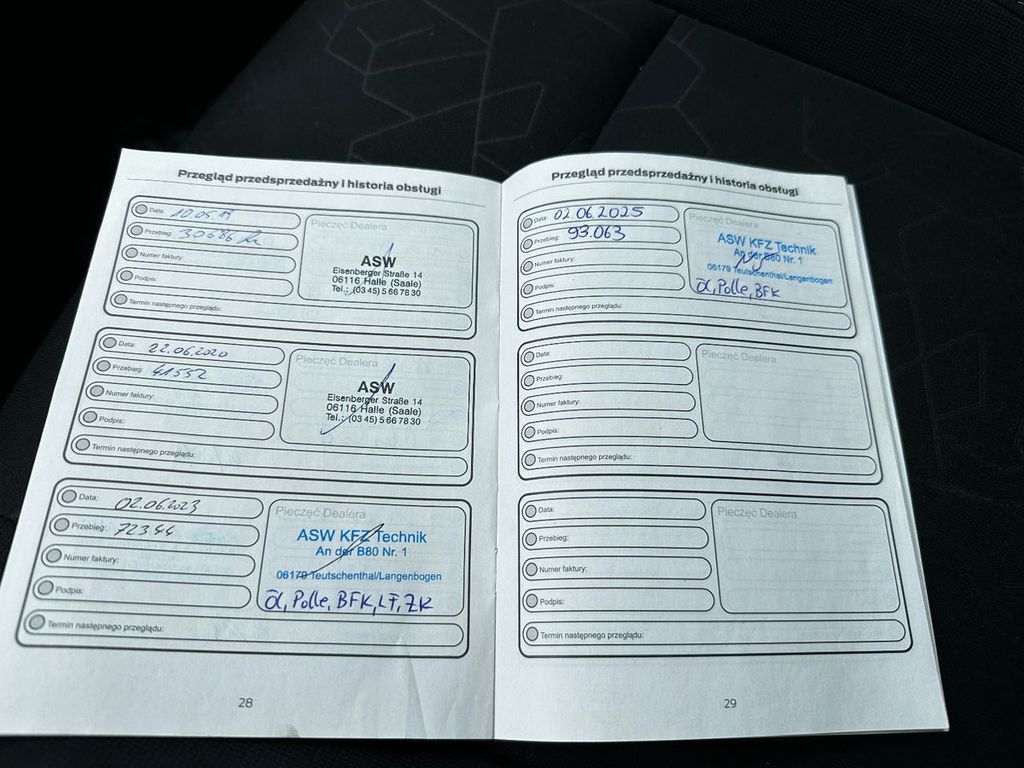 Przegląd przedsprzedażny i historia obsługi
Data: 10.05.19
Przebieg: 30686 km
Numer faktury:
Podpis:
Termin następnego przeglądu:
Pieczęć Dealera
ASW
Eisenberger Straße 14
06116 Halle (Saale)
Tel.: (03 45) 5 66 78 30
Data: 22.06.2020
Przebieg: 41552
Numer faktury:
Podpis:
Termin następnego przeglądu:
Pieczęć Dealera
ASW
Eisenberger Straße 14
06116 Halle (Saale)
Tel.: (03 45) 5 66 78 30
Data: 02.06.2023
Przebieg: 72344
Numer faktury:
Podpis:
Termin następnego przeglądu:
Pieczęć Dealera
ASW KFZ Technik
An der B80 Nr. 1
06179 Teutschenthal/Langenbogen
Öl, Polle, BFK, LF, ZK
28
Przegląd przedsprzedażny i historia obsługi
Data: 02.06.2025
Przebieg: 93.063
Numer faktury:
Podpis:
Termin następnego przeglądu:
Pieczęć Dealera
ASW KFZ Technik
An der B80 Nr. 1
06179 Teutschenthal/Langenbogen
Öl, Polle, BFK
Data:
Przebieg:
Numer faktury:
Podpis:
Termin następnego przeglądu:
Pieczęć Dealera
Data:
Przebieg:
Numer faktury:
Podpis:
Termin następnego przeglądu:
Pieczęć Dealera
29